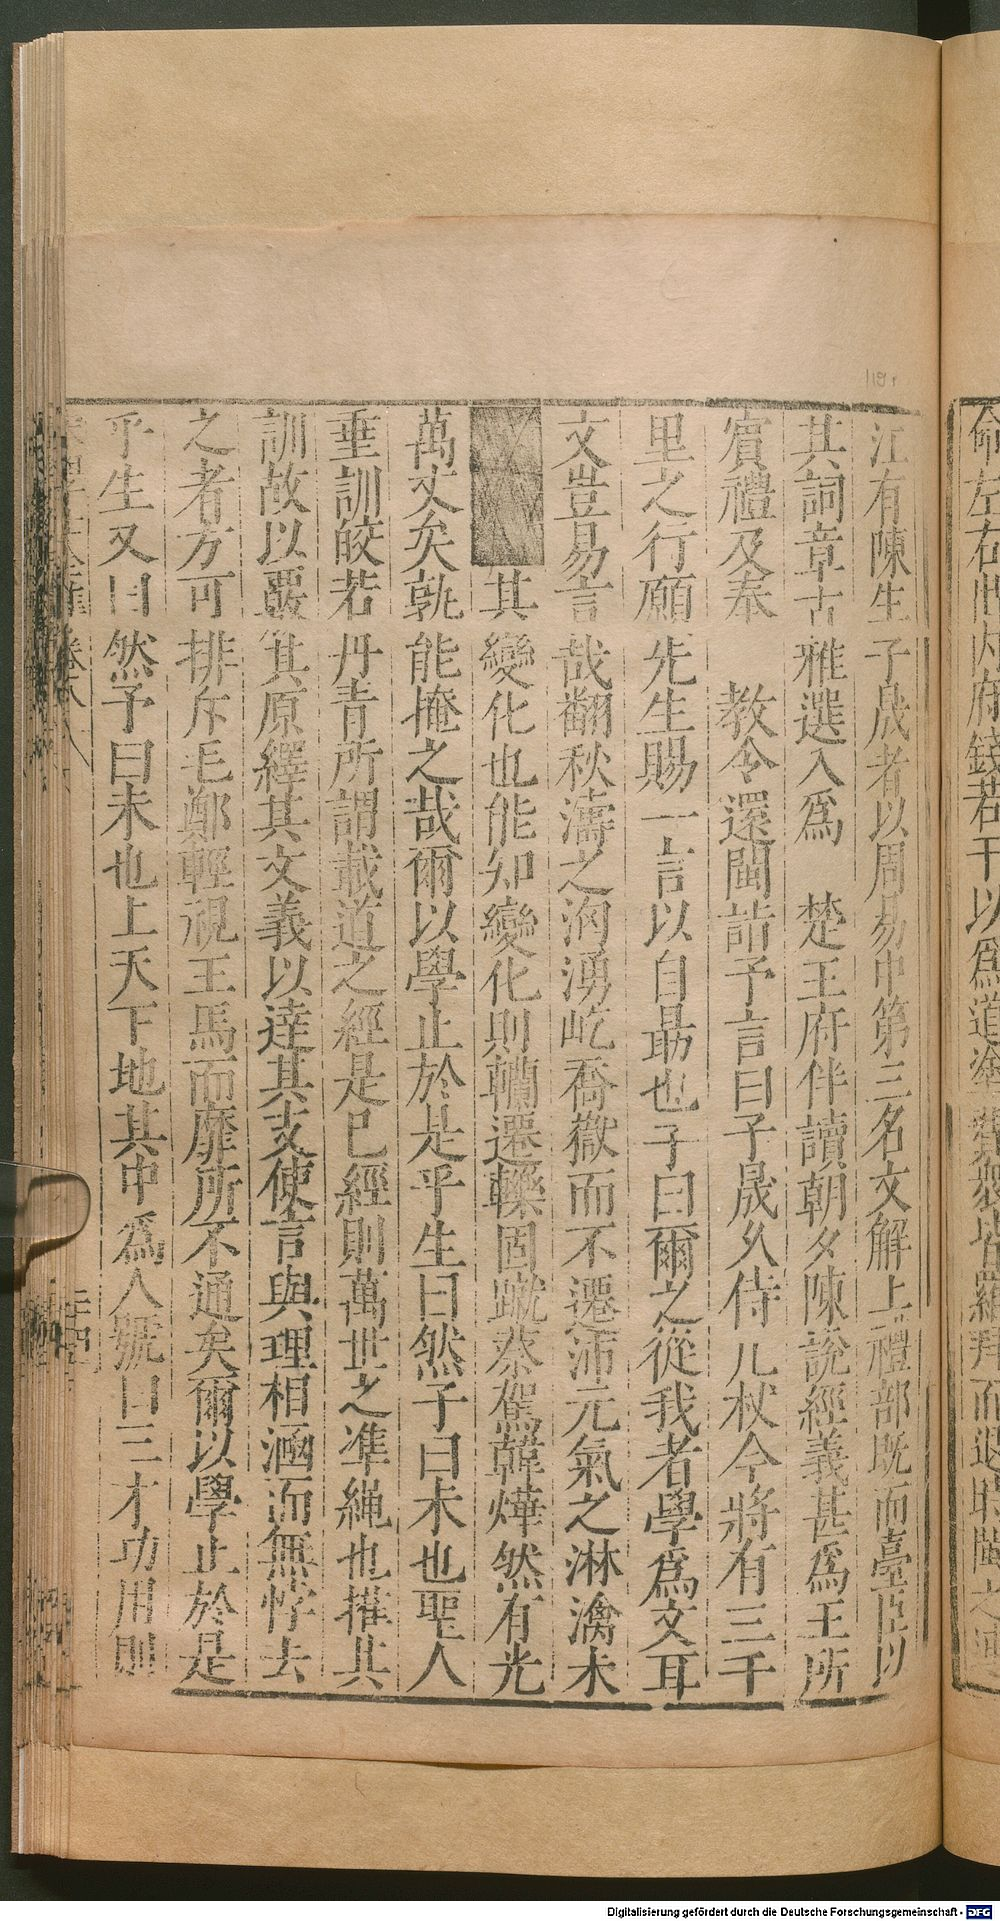 江有陳生子晟者以周易中第三名文解上禮部既而臺臣以
其詞章古雅選入爲　楚王府伴讀朝夕陳說經義甚爲王所
賓禮及奉　教令還閩詣予言曰子晟久侍几杖今將有三千
里之行願先生賜一言以自勗也予曰爾之從我者學爲文耳
文豈易言哉翻秋濤之洶湧屹喬嶽而不遷沛元氣之淋漓未
其變化也能知變化則轥遷轢固蹴蔡駕韓燁然有光
萬丈矣孰能掩之哉爾以學止於是乎生曰然予曰未也聖人
垂訓皎若丹青所謂載道之經是已經則萬世之準繩也摧其
訓故以覈其原繹其文義以達其支使言與理相涵而無悖去
之者方可排斥毛鄭輕視王馬而靡所不通矣爾以學止於是
乎生又曰然予曰未也上天下地其中爲人號曰三才功用則
卷八
命左右出內府錢若干以爲道塗
而退
119r
Digitalisierung gefördert durch die Deutsche Forschungsgemeinschaft - DFG